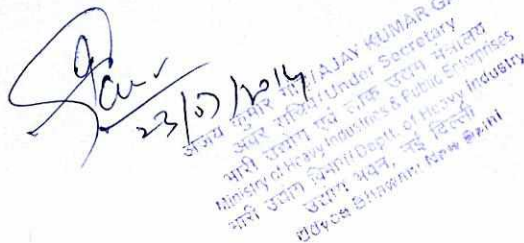 23/07/2014
अजय कुमार /AJAY KUMAR
अवर सचिव/Under Secretary
भारी उद्योग एवं लोक उद्यम मंत्रालय
Ministry of Heavy Industries & Public Enterprises
भारी उद्योग विभाग/Deptt. of Heavy Industry
उद्योग भवन, नई दिल्ली
Udyog Bhawan, New Delhi